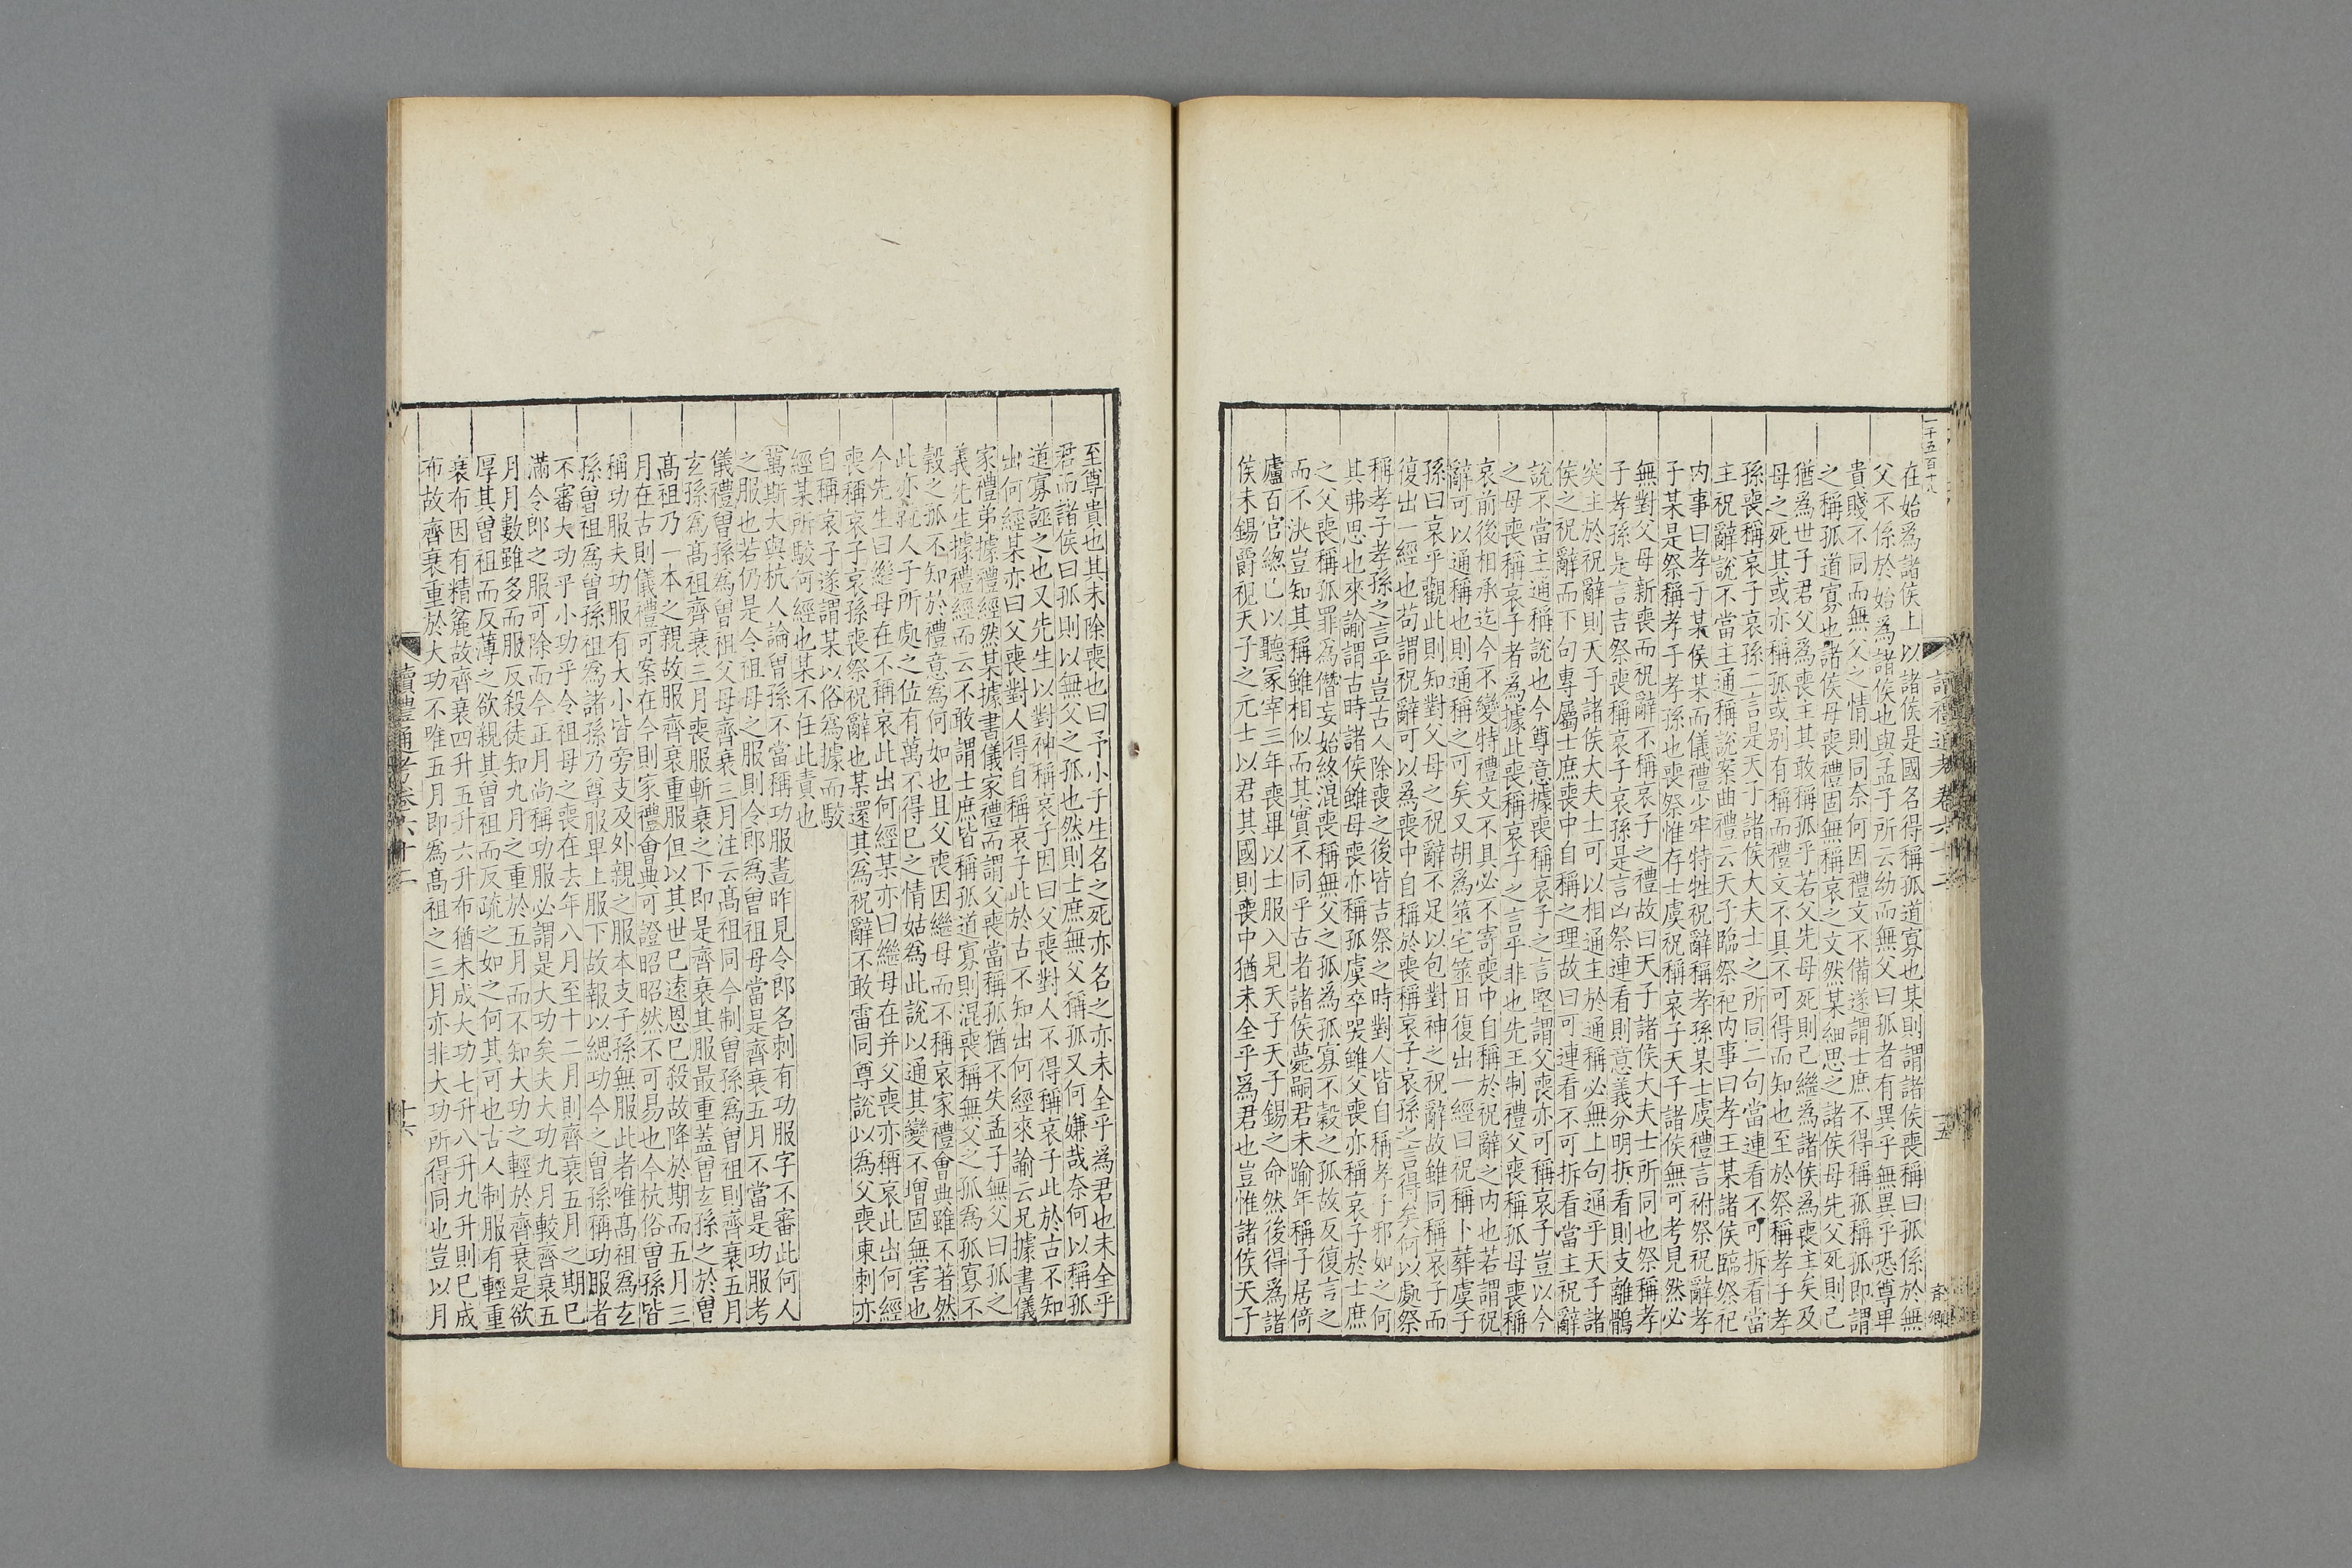 一千五百十八
讀禮通考卷六十二
十五
在始爲諸侯上以諸侯是國名得稱孤道寡也某則謂諸侯喪稱曰孤係於無
父不係於始爲諸侯也與孟子所云幼而無父曰孤者有異乎無異乎恐尊卑
貴賤不同而無父之情則同奈何因禮文不備遂謂士庶不得稱孤稱孤即謂
之稱孤道寡也諸侯母喪禮固無稱哀之文然某細思之諸侯母先父死則已
猶爲世子君父爲喪主其敢稱孤乎若父先母死則己繼爲諸侯爲喪主矣及
母之死其或亦稱孤或别有稱而禮文不具不可得而知也至於祭稱孝子孝
孫喪稱哀子哀孫二言是天子諸侯大夫士之所同二句當連看不可拆看當
主祝辭說不當主通稱說案曲禮云天子臨祭祀内事曰孝王某諸侯臨祭祀
内事曰孝子某侯某而儀禮少牢特牲祝辭稱孝孫某士虞禮言祔祭祝辭孝
子某是祭稱孝子孝孫也喪祭惟存士虞祝稱哀子天子諸侯無可考見然必
無對父母新喪而祝辭不稱哀子之禮故曰天子諸侯大夫士所同也祭稱孝
子孝孫是言吉祭喪稱哀子哀孫是言凶祭連看則意義分明拆看則支離鶻
突主於祝辭則天子諸侯大夫士可以相通主於通稱必無上句通乎天子諸
侯之祝辭而下句專屬士庶喪中自稱之理故曰可連看不可拆看當主祝辭
說不當主通稱說也今尊意據喪稱哀子之言堅謂父喪亦可稱哀子豈以今
之母喪稱哀子者爲據此喪稱哀子之言乎非也先王制禮父喪稱孤母喪稱
哀前後相承迄今不變特禮文不具必不寄喪中自稱於祝辭之内也若謂祝
辭可以通稱也則通稱之可矣又胡爲筮宅筮日復出一經曰祝稱卜葬虞子
孫曰哀乎觀此則知對父母之祝辭不足以包對神之祝辭故雖同稱哀子而
復出一經也苟謂祝辭可以爲喪中自稱於喪稱哀子哀孫之言得矣何以處祭
稱孝子孝孫之言乎豈古人除喪之後皆吉祭之時對人皆自稱孝子邪如之何
其弗思也來諭謂古時諸侯雖母喪亦稱孤虞卒哭雖父喪亦稱哀子於士庶
之父喪稱孤罪爲僭妄始終混喪稱無父之孤爲孤寡不榖之孤故反復言之
而不決豈知其稱雖相似而其實不同乎古者諸侯薨嗣君未踰年稱子居倚
廬百官總己以聽冢宰三年喪畢以士服入見天子天子錫之命然後得爲諸
侯未錫爵視天子之元士以君其國則喪中猶未全乎爲君也豈惟諸侯天子
至尊貴也其未除喪也曰予小子生名之死亦名之亦未全乎爲君也未全乎
君而諸侯曰孤則以無父之孤也然則士庶無父稱孤又何嫌哉奈何以稱孤
道寡誣之也又先生以對神稱哀子因曰父喪對人不得稱哀子此於古不知
出何經某亦曰父喪對人得自稱哀子此於古不知出何經來諭云兄據書儀
家禮弟據禮經然某據書儀家禮而謂父喪當稱孤猶不失孟子無父曰孤之
義先生據禮經而云不敢謂士庶皆稱孤道寡則混喪稱無父之孤爲孤寡不
榖之孤不知於禮意爲何如也且父喪因繼母而不稱哀家禮會典雖不著然
此亦就人子所處之位有萬不得已之情姑爲此說以通其變不增固無害也
今先生曰繼母在不稱哀此出何經某亦曰繼母在并父喪亦稱哀此出何經
喪稱哀子哀孫喪祭祝辭也某還其爲祝辭不敢雷同尊說以爲父喪柬刺亦
自稱哀子遂謂某以俗爲據而駁
經某所駁何經也某不任此責也
萬斯大與杭人論曾孫不當稱功服書昨見令郎名刺有功服字不審此何人
之服也若仍是令祖母之服則令郎爲曾祖母當是齊衰五月不當是功服考
儀禮曾孫爲曾祖父母齊衰三月注云高祖同今制曾孫爲曾祖則齊衰五月
玄孫爲高祖齊衰三月喪服斬衰之下即是齊衰其服最重蓋曾玄孫之於曾
高祖乃一本之親故服齊衰重服但以其世已遠恩已殺故降於期而五月三
月在古則儀禮可案在今則家禮會典可證昭昭然不可易也今杭俗曾孫皆
稱功服夫功服有大小皆旁支及外親之服本支子孫無服此者唯高祖爲玄
孫曾祖爲曾孫祖爲諸孫乃尊服卑上服下故報以緦功今之曾孫稱功服者
不審大功乎小功乎令祖母之喪在去年八月至十二月則齊衰五月之期已
滿令郎之服可除而今正月尚稱功服必謂是大功矣夫大功九月較齊衰五
月月數雖多而服反殺徒知九月之重於五月而不知大功之輕於齊衰是欲
厚其曾祖而反薄之欲親其曾祖而反疏之如之何其可也古人制服有輕重
衰布因有精麄故齊衰四升五升六升布猶未成大功七升八升九升則已成
布故齊衰重於大功不唯五月即爲高祖之三月亦非大功所得同也豈以月
讀禮通考卷六十二
十六